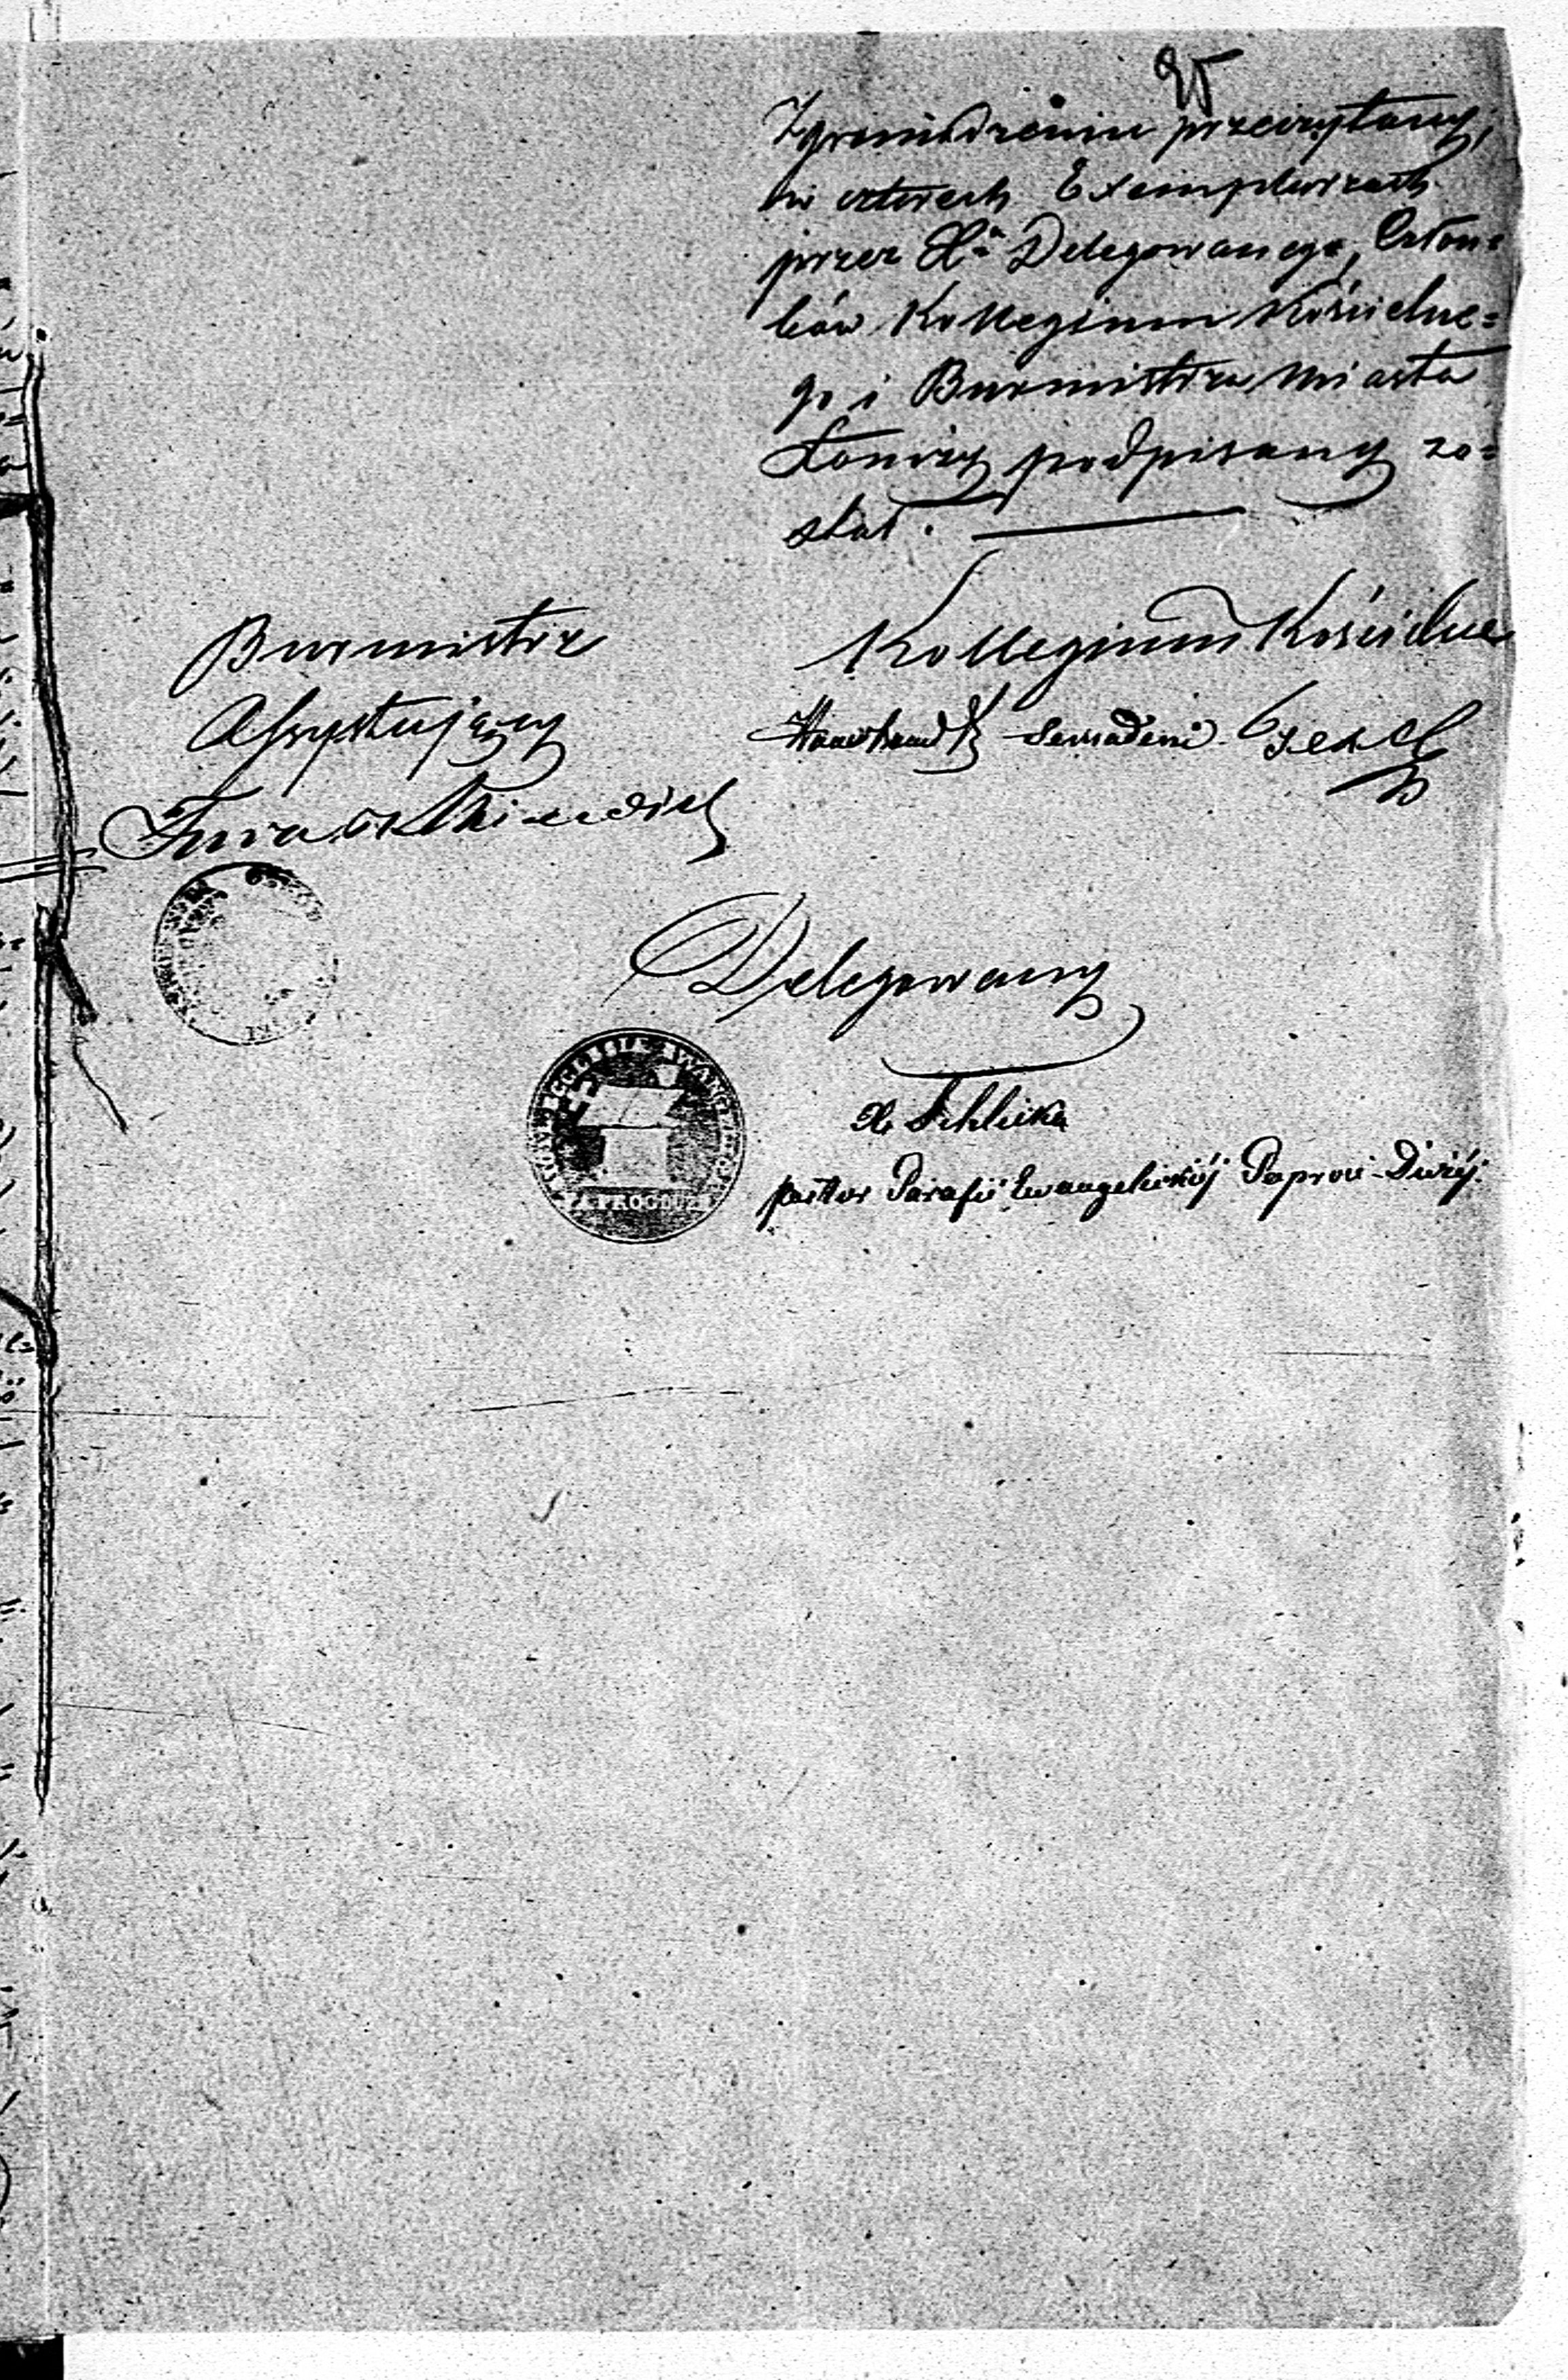 25
Zgromadzeniu przeczytany,
w czterech Exemplarzach
przez Xa Delegowanego, Człon=
ków Kollegium Kościelne=
go i Burmistrza Miasta
Łomży podpisany zo=
stał.
Burmistrz
Assystujący
Kollegium Kościelne
Delegowany
X. Schlicke
pastor Parafii Ewangelickiéj Paproci-Dużéj.